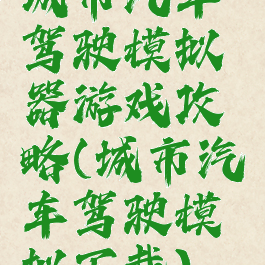 城市汽车
驾驶模拟
器游戏攻
略(城市汽
车驾驶模
拟下载)